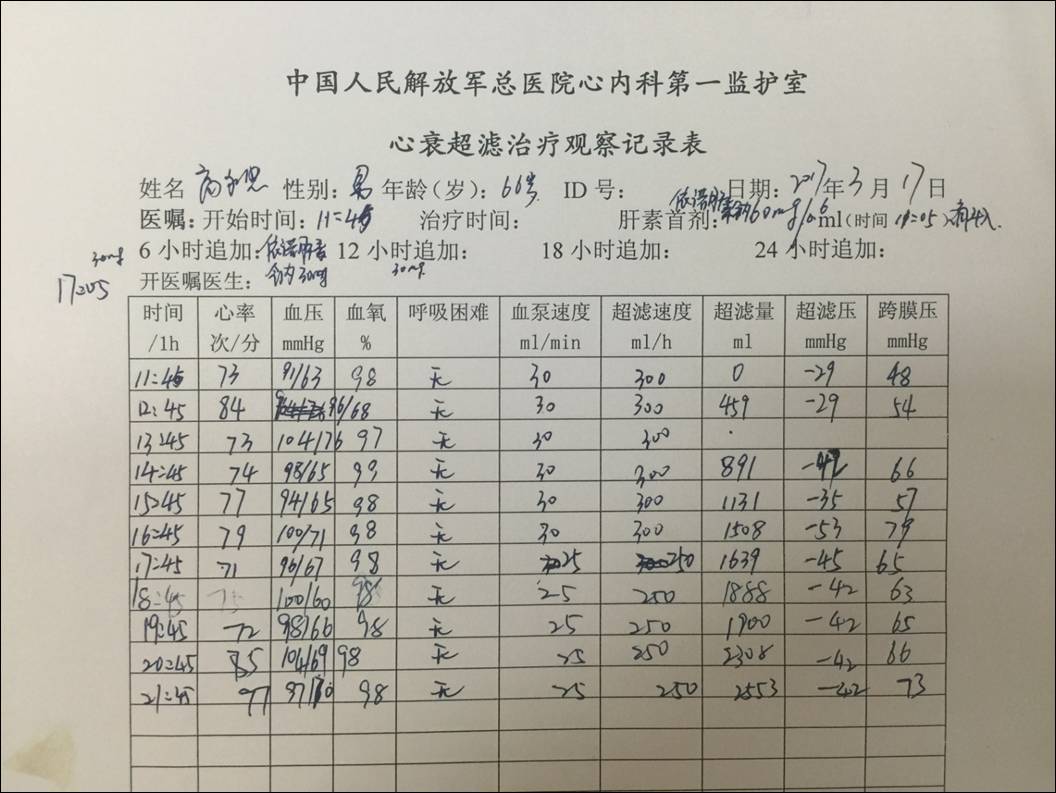 中国人民解放军总医院心内科第一监护室
心衰超滤治疗观察记录表
姓名 性别: 男 年龄(岁): 66岁 ID 号: 日期: 2017年3月17日
医嘱: 开始时间: 11:45 治疗时间: 肝素首剂: 依诺肝素钠60mg/0.6ml(时间 11:05)
6 小时追加: 依诺肝素钠30mg 12 小时追加: 30mg 18 小时追加: 24 小时追加:
30mg
17:05
开医嘱医生:
时间/1h 心率次/分 血压mmHg 血氧% 呼吸困难 血泵速度ml/min 超滤速度ml/h 超滤量ml 超滤压mmHg 跨膜压mmHg
11:45 73 91/63 98 无 30 300 0 -29 48
12:45 84 96/68 98 无 30 300 459 -29 54
13:45 73 104/76 97 无 30 300
14:45 74 98/65 99 无 30 300 891 -42 66
15:45 77 94/65 98 无 30 300 1131 -35 57
16:45 79 100/71 98 无 30 300 1508 -53 79
17:45 71 96/67 98 无 25 250 1639 -45 65
18:45 75 100/60 98 无 25 250 1888 -42 63
19:45 72 98/66 98 无 25 250 1900 -42 65
20:45 85 104/69 98 无 25 250 2308 -42 66
21:45 97 97/70 98 无 25 250 2553 -42 73